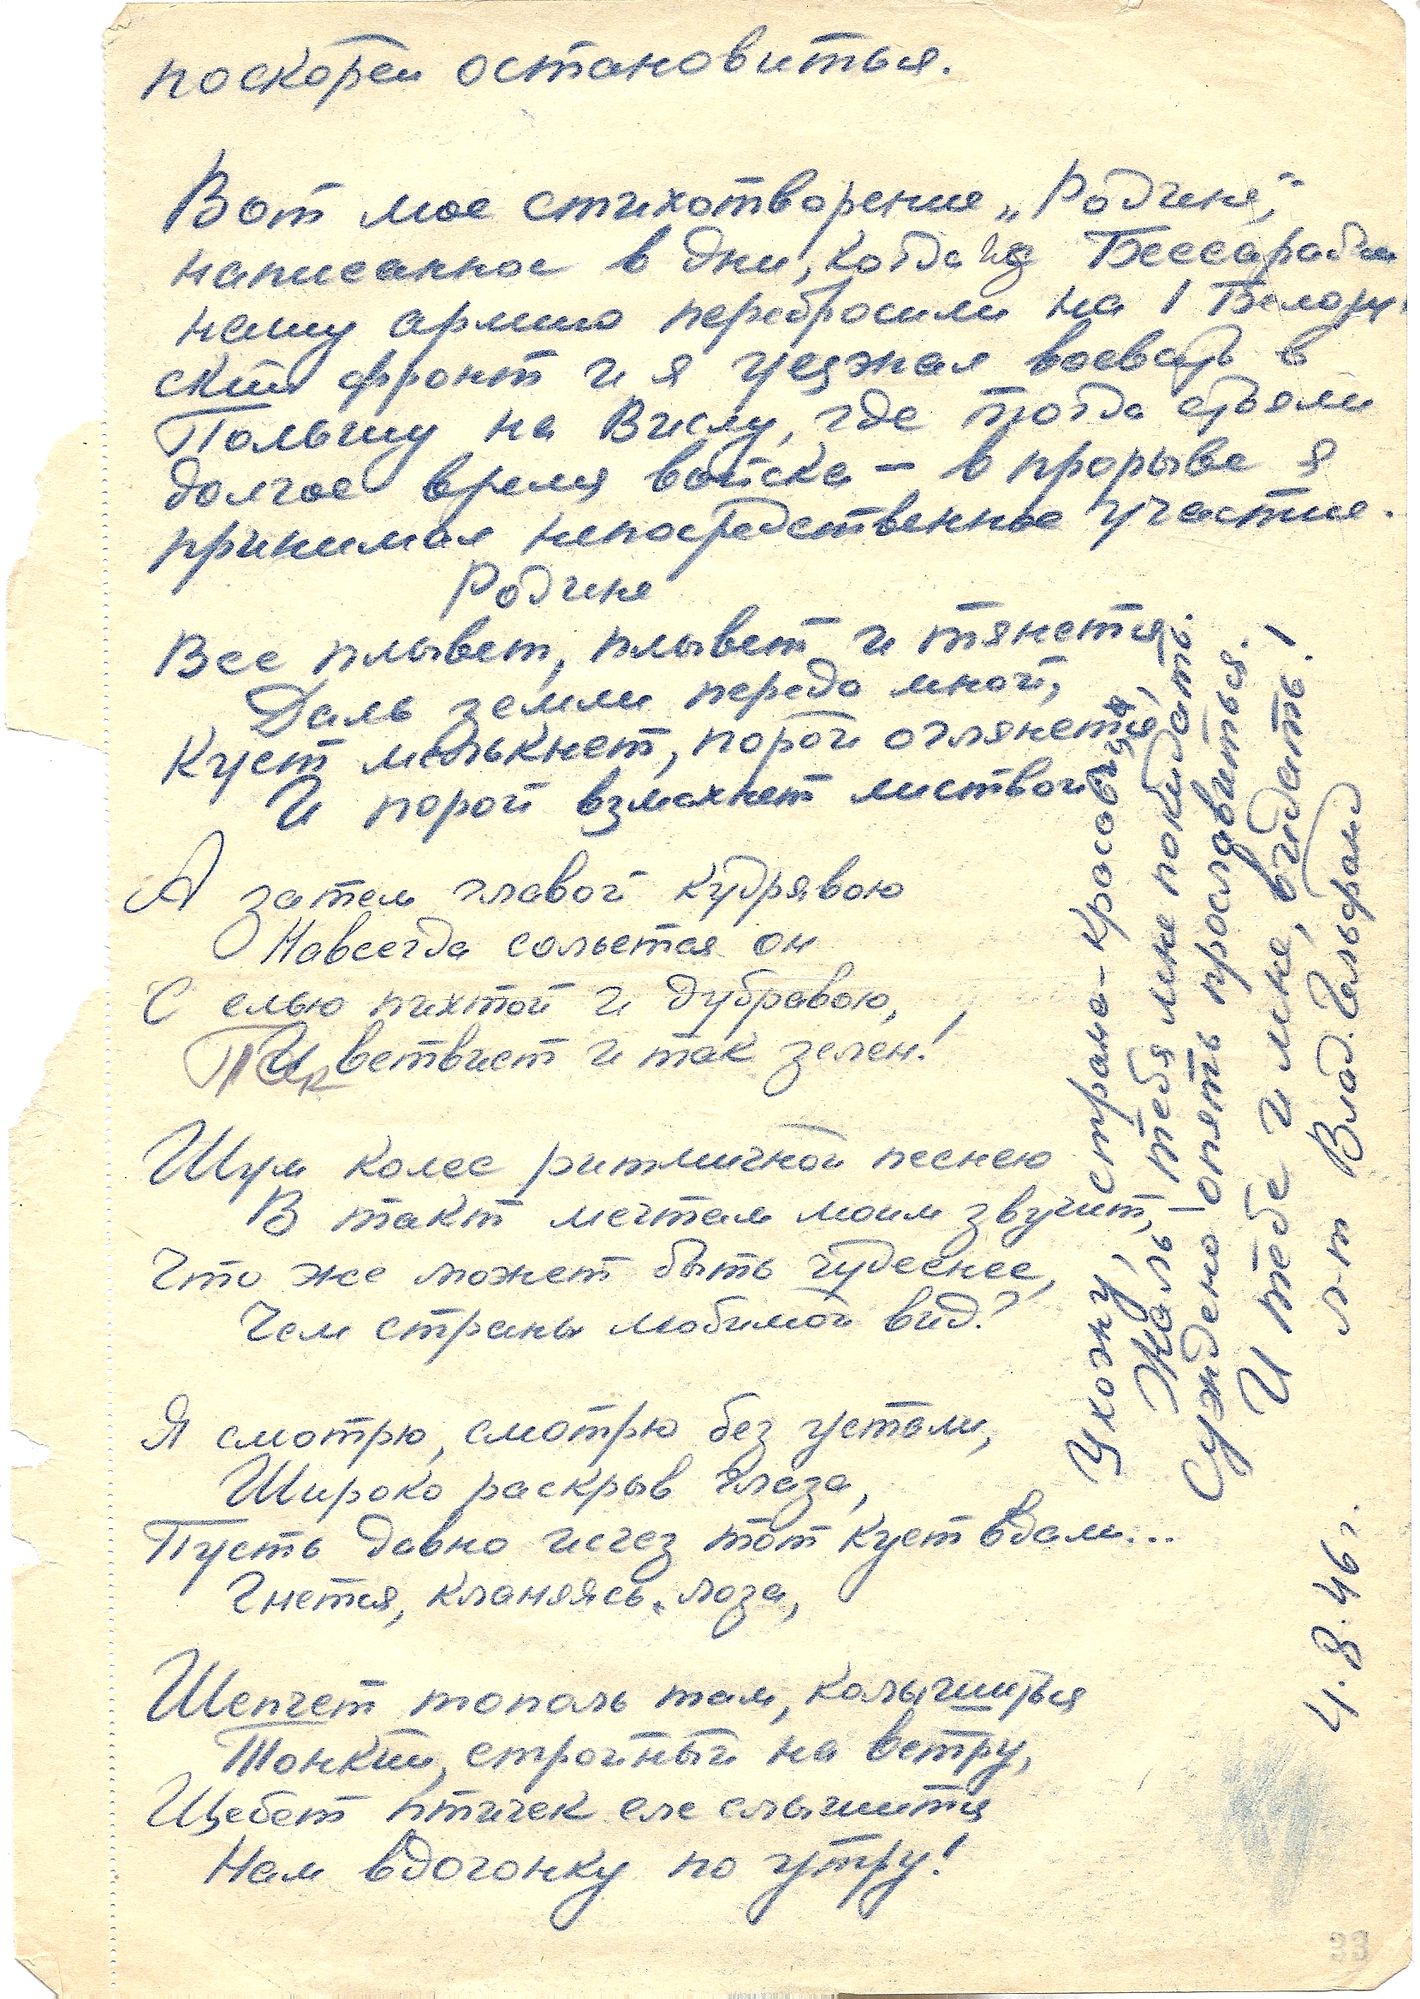 поскорей остановиться.
Вот мое стихотворение „Родине",
написанное в дни, когда из Бессарабии
нашу армию перебросили на 1 Белорус-
ский фронт и я уезжал воевать в
Польшу на Вислу, где тогда стояли
долгое время войска – в прорыве я
принимал непосредственное участие.
Родине
Все плывет, плывет и тянется
Даль земли передо мной,
Куст мелькнет, порой оглянется,
И порой взмахнет листвой
А затем главой кудрявою
Навсегда сольется он
С елью пихтой и дубравою,
Так ветвист и так зелен!
Шум колес ритмичной песнею
В такт мечтам моим звучит, –
Что же может быть чудеснее,
Чем страны любимой вид?
Я смотрю, смотрю без устали,
Широко раскрыв глаза,
Пусть давно исчез тот куст вдали...
Гнется, кланяясь, лоза,
Шепчет тополь там, колышиться
Тонкий, стройный на ветру,
Щебет птичек еле слышится
Нам вдогонку по утру!
Ухожу, страна-красавица,
Жаль тебя мне покидать.
Суждено опять прославиться.
И тебе и мне, видать!
л-т Влад. Гельфанд
4.8.46 г.
33